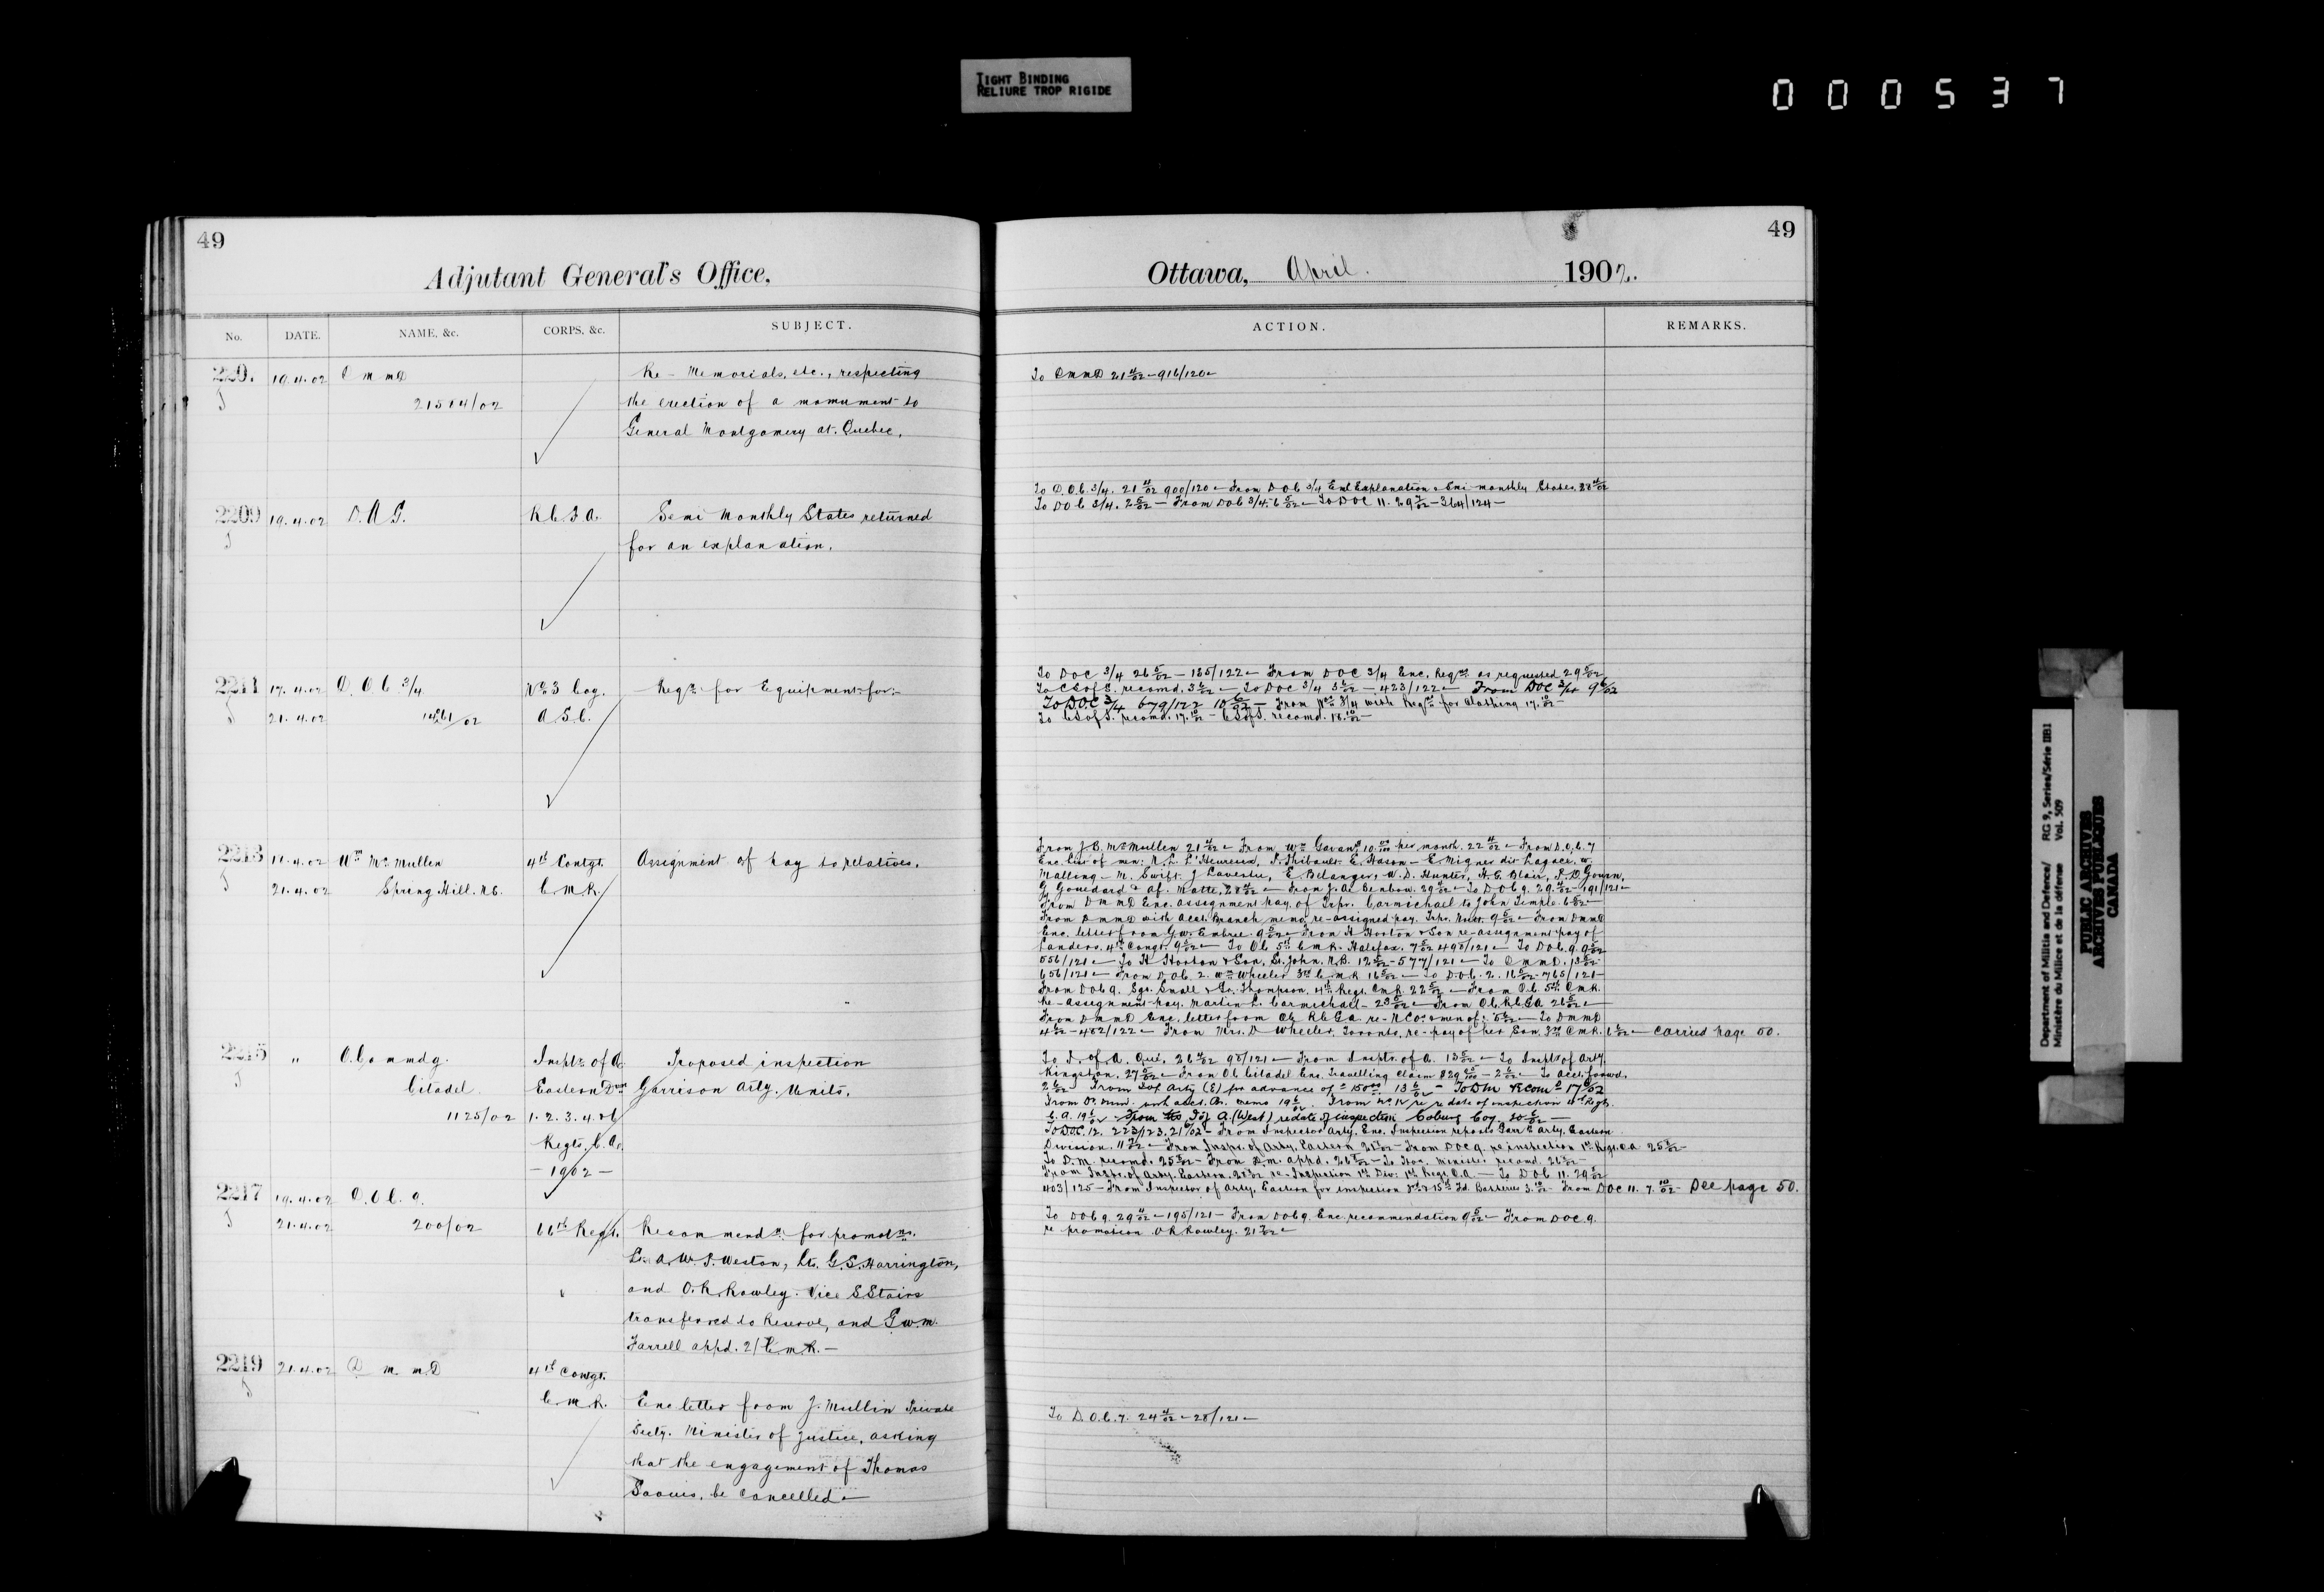 TIGHT BINDING
RELIURE TROP RIGIDE
000537
49
Adjutant General's Office.
No. DATE. NAME, &c. CORPS, &c. SUBJECT.
19.4.02 D M M D Re - Memorials, etc., respecting
21514/02 the erection of a monument to
General Montgomery at Quebec.
2209 19.4.02 D.A.G. R.C.F.A. Semi Monthly States returned
for an explanation.
2211 17.4.02 D.O.C. 3/4 No. 3 Coy. Reqn. for Equipment for:-
21.4.02 02 A.S.C.
2213 11.4.02 Wm McMullen 4th Contgt. Assignment of pay to relatives.
21.4.02 Spring Hill. N.S. C.M.R.
2215 " O.C. Commdg. Inspr. of A. Proposed inspection
Citadel. Eastern Garrison Arty. Units.
1125/02 1.2.3.4.
Regts. C.A.
- 1902 -
2217 19.4.02 D.O.C. 9.
21.4.02 200/02 66th Regt. Recommendn. for promotns.
Lt. A.W.P. Weston, Lts. G.S. Harrington,
and O.R. Rowley. Vice S. Stairs
transferred to Reserve, and G.W.M.
Farrell appd. 2/C.M.R. —
2219 21.4.02 D M M D 4th Contgt.
C.M.R. Enc letter from J. Mullin Private
Secty. Minister of Justice, asking
that the engagement of Thomas
be cancelled —
49
Ottawa, April. 1902.
ACTION. REMARKS.
To DMMD 21 4/02 - 916/120 -
To D.O.C. 3/4. 21 4/02 900/120 - From D O C 3/4 Explanation & Semi monthly States. 28 4/02
To D O C 3/4. 2 5/02 - From D O C 3/4. 6 5/02 - To D O C 11. 29 7/02 - 364/124 -
To D O C 3/4 26 5/02 - 185/122 - From D O C 3/4 Enc. Reqn. as requested 29 5/02
To C S of S. recomd. 3 6/02 - To D O C 3/4 5 6/02 - 423/122 - From DOC 3/4 9 6/02
To D.O.C 3/4 679/122 10 6/02 - From 3/4 with Reqn. for Clothing 17. 10/02 -
To C S of S. recomd. 17. 10/02 - C S of S. recomd. 18. 10/02 -
From J.B. McMullen 21 4/02 - From Wm 10.00 per month. 22 4/02 - From D.O.C. 7
Enc. list of men: N.L. L'Heureux, P. Thibault. E. Hason - E. Migner dit Lagace. W.
Malling - M. Swift. J. E. Belanger, W.D. Hunter, H.G. Blair,
28 4/02 - From J.A. Benbow. 29 4/02 - To D O C 9. 29. 4/02 - 191/121 -
From D M M D Enc. assignment pay of Trpr. Carmichael to John Temple. 6 5/02 -
From D M M D with Acct. Branch memo re-assigned pay. Trpr. 9 5/02 - From DMMD
Enc. letter from G.W. Embree. 9 5/02 - From H. Horton & Son re-assignment pay of
Landers. 4th Congt. 9 5/02 - To O.C. 5th C.M.R. Halifax. 7 5/02 498/121 - To D O C. 9. 9 5/02
556/121 - To H. Horton & Son, St. John. N.B. 12 5/02 - 577/121 - To D M M D. 13 5/02
656/121 - From D O C. 2. Wm Wheeler 3rd C.M.R. 16 5/02 - To D.O.C. 2. 16 5/02 - 765/121 -
From D O C 9. Sgt. Small & Thompson. 4th Regt. C M R. 22 5/02 - From O.C. 5th C M R.
Re-assignment pay. Martin L. Carmichael - 23 5/02 - From O.C. R.C.G.A. 26 5/02 -
From D M M D Enc. letter from O.C. R.C.G.A. re - N.C.O.s & men of: 5 6/02 - To D M M D
4 6/02 - 482/122 - From Mrs. D. Wheeler. Toronto, re-pay of her Son. 3rd C M R. 6 6/02 - Carried page 50.
To I. of A. Que. 26 4/02 98/121 - From Inspr. of A. 13 5/02 - To Inspr. of Arty.
Kingston. 27 5/02 - From O.C. Citadel Enc. Travelling Claim - 2 6/02 - To Acct. forwd.
2 6/02 - From Insp Arty (E) for advance of $150.00 13 6/02 - To DM recomd 17 6/02
From with acct. Br. memo 19 6/02 From re date of inspection Regt.
C.A. 19 6/02 - From I of A. (West) re date of inspection Cobourg Coy. 20 6/02 -
To D.O.C. 12. 223/123. 21 6/02 - From Inspector Arty. Enc. Inspection reports Garrn. Arty. Eastern
Division. 11 7/02 - From Inspr. of Arty. Eastern 21 7/02 - From D O C 9. re inspection 1st Regt. C.A. 25 7/02 -
To D.M. recomd. 25 7/02 - From D.M. appd. 26 7/02 - To Hon. Minister recomd. 26 7/02 -
From Inspr. of Arty. Eastern. 28 7/02 re-Inspection 1st Div. 1st Regt. C.A. - To D O C 11. 29 8/02
403/125 - From Inspector of Arty. Eastern for inspection 3rd & 15th Fd. Batteries 3. 10/02 - From DOC 11. 7. 10/02 - See page 50.
To D O C 9. 29 4/02 - 195/121 - From D O C 9. Enc. recommendation 9 5/02 - From D O C. 9.
re promotion O R Rowley. 21 7/02 -
To D.O.C. 7. 24 4/02 - 28/121 -
Department of Militia and Defence/ RG 9, Series/Série IIB1
Ministère du Milice et de la défense Vol. 509
PUBLIC ARCHIVES
ARCHIVES PUBLIQUES
CANADA